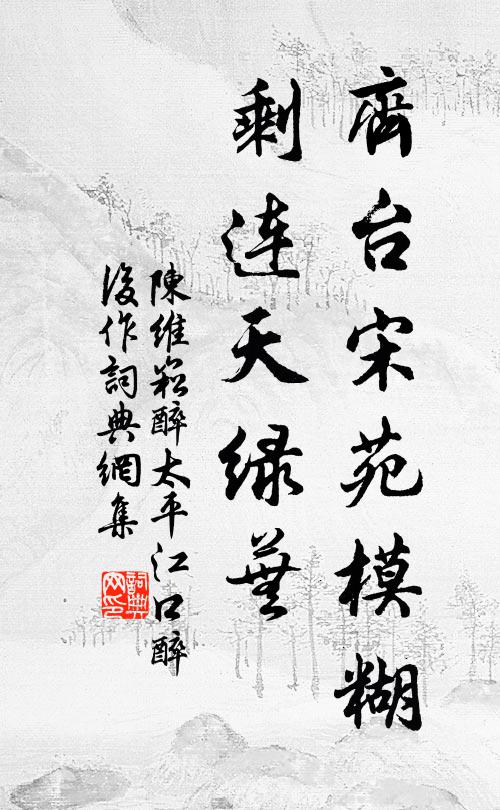 齊台宋苑模糊
剩连天绿蕪
陳維崧醉太平江口醉
後作詞典網集
詞典网印